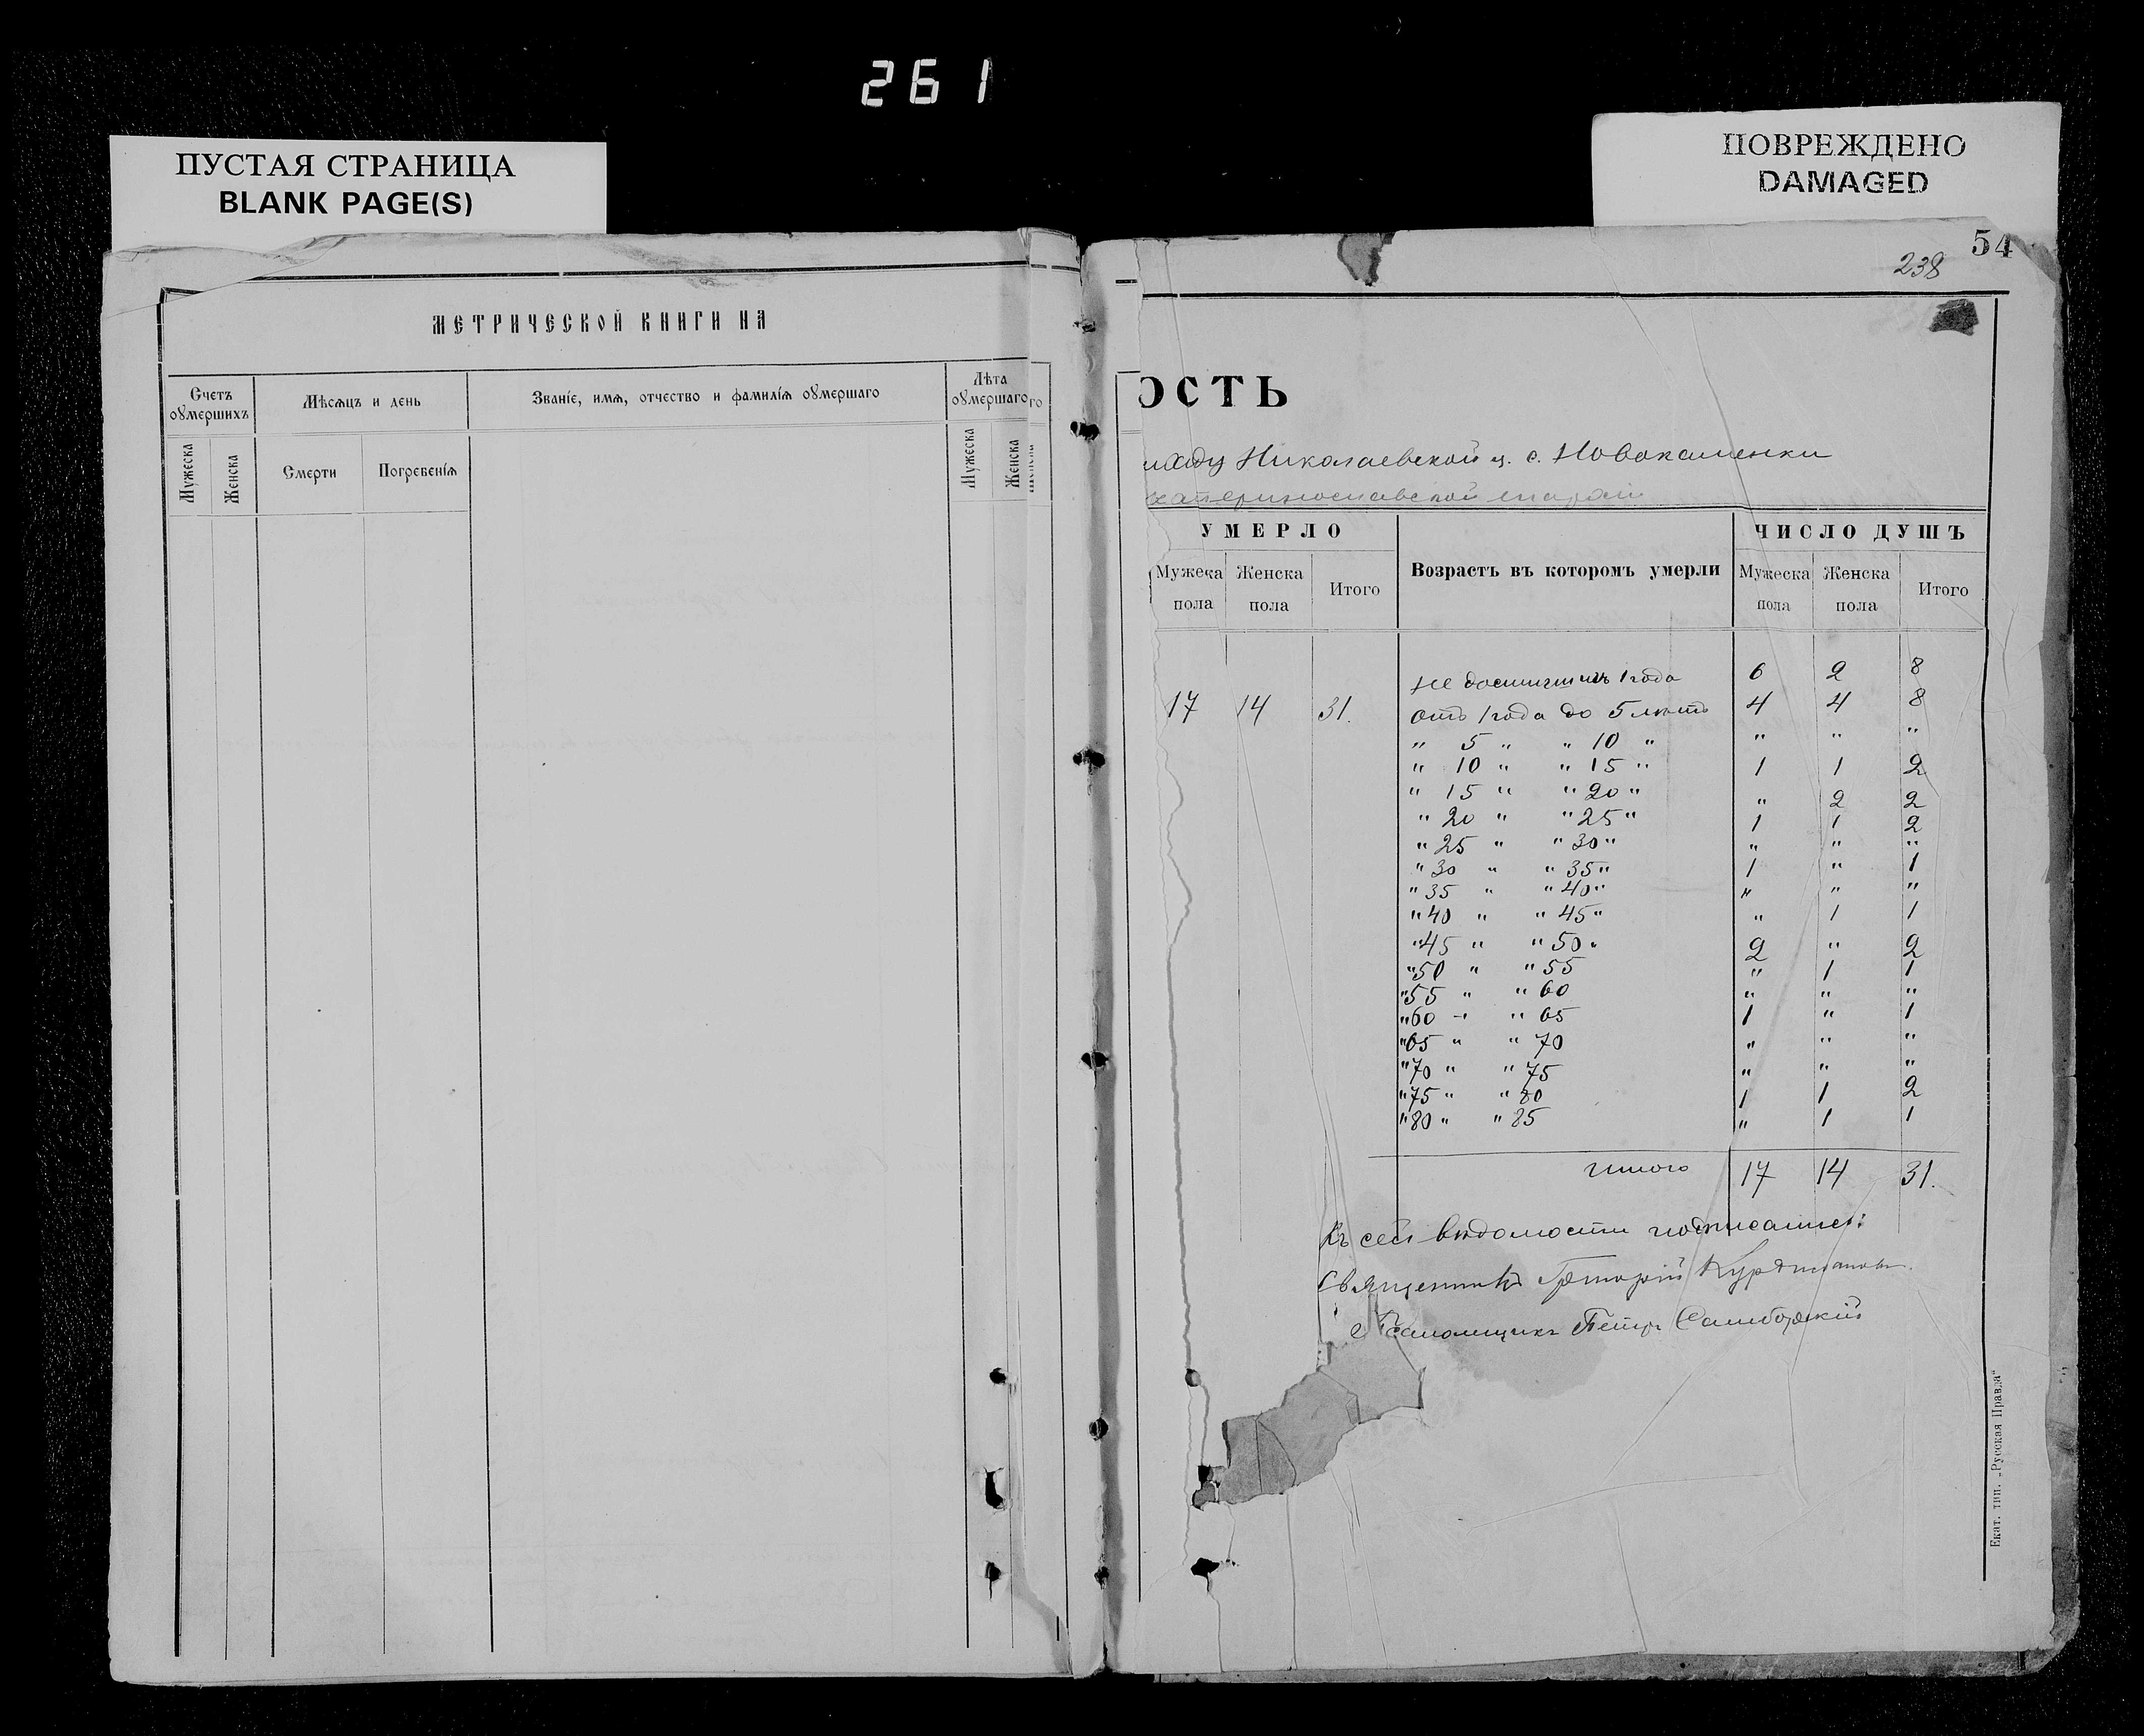 261
ПУСТАЯ СТРАНИЦА
BLANK PAGE(S)
ПОВРЕЖДЕНО
DAMAGED
МЕТРИЧЕСКОЙ КНИГИ НА
Счетъ оумершихъ
Мѣсяцъ и день
Званіе, имя, отчество и фамилія оумершаго
Лѣта оумершаго
го
Мужеска
Женска
Смерти
Погребенія
Мужеска
Женска
54
238
ОСТЬ
иходу Николаевской ц. с. Новокаменки
катеринославской епархіи
УМЕРЛО
Возрастъ въ которомъ умерли
ЧИСЛО ДУШЪ
Мужеска пола
Женска пола
Итого
Мужеска пола
Женска пола
Итого
Не достигшихъ 1 года 6 2 8
17 14 31. Отъ 1 года до 5 лѣтъ 4 4 8
" 5 " " 10 " " " "
" 10 " " 15 " 1 1 2
" 15 " " 20 " " 2 2
" 20 " " 25 " 1 1 2
" 25 " " 30 " " " "
" 30 " " 35 " 1 " 1
" 35 " " 40 " " " "
" 40 " " 45 " " 1 1
" 45 " " 50 " 2 " 2
" 50 " " 55 " 1 1
" 55 " " 60 " " "
" 60 " " 65 1 " 1
" 65 " " 70 " " "
" 70 " " 75 " " "
" 75 " " 80 1 1 2
" 80 " " 85 " 1 1
Итого 17 14 31.
Къ сей вѣдомости подписались:
Священникъ Григорій
Псаломщикъ Петръ Самборскій
Екат. тип. „Русская Правда"